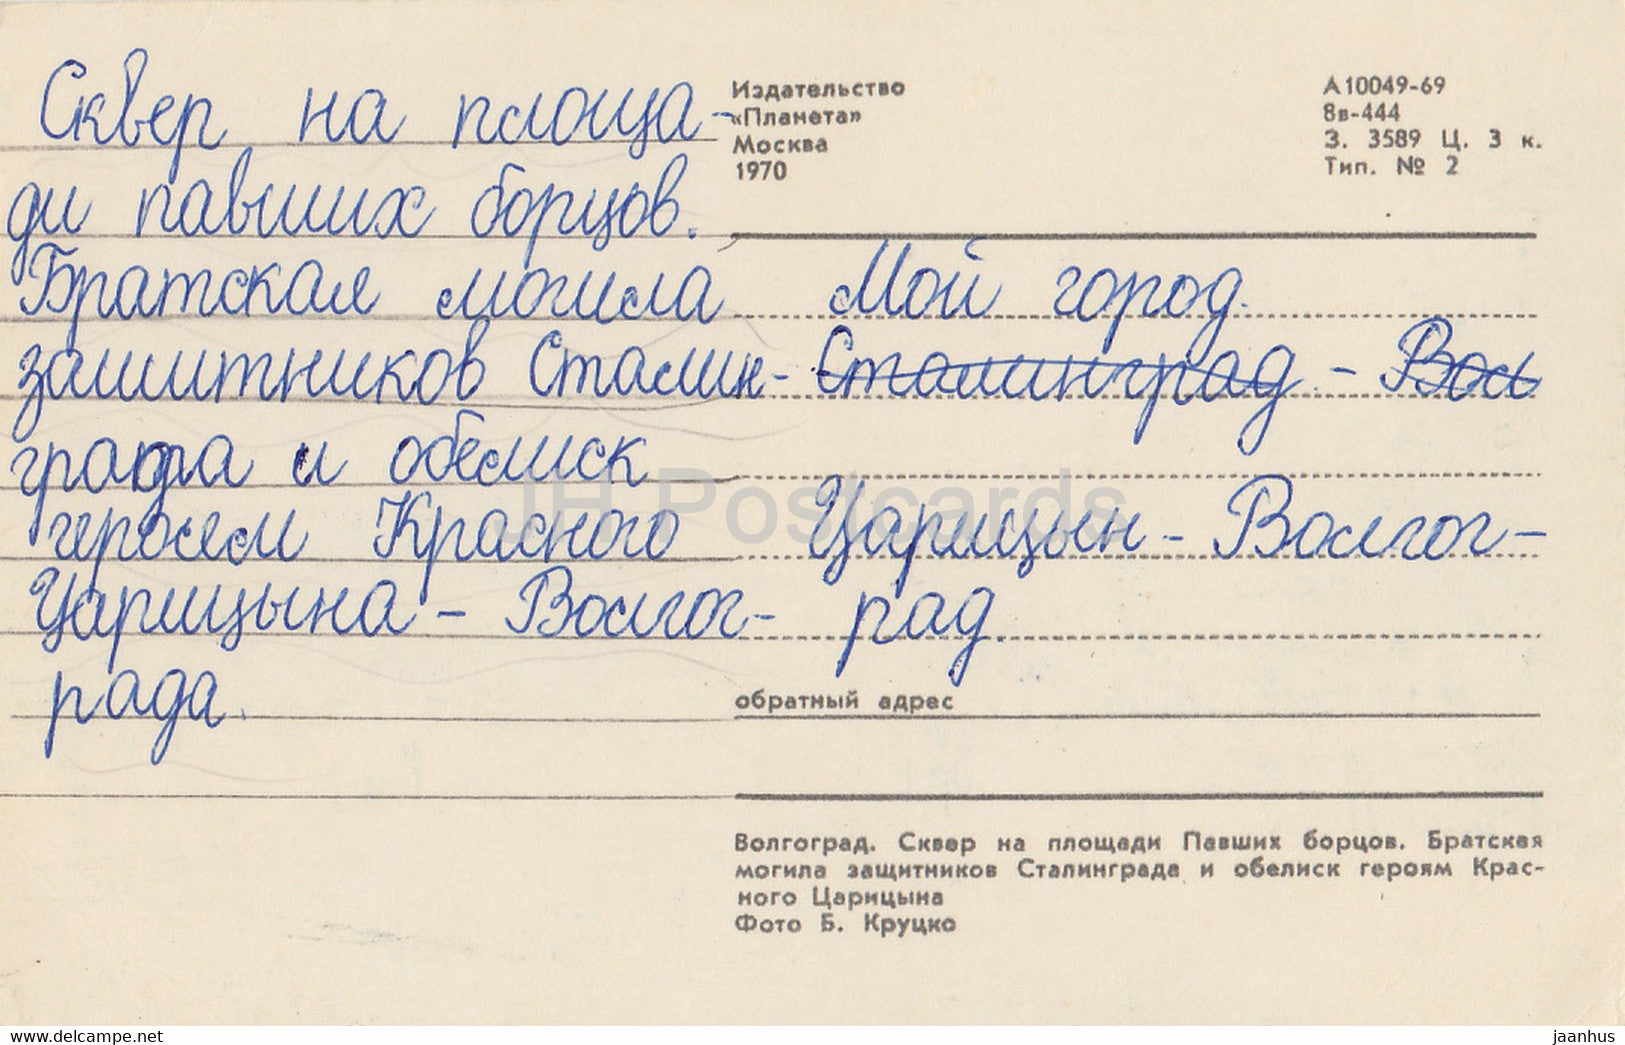 Сквер на площа-
ди павших борцов.
Братская могила
защитников Сталин-
града и обелиск
героям Красного
Царицына - Волгог-
рада.
Издательство
«Планета»
Москва
1970
А10049-69
8в-444
З. 3589 Ц. 3 к.
Тип. № 2
Мой город
Сталинград - Вол
Царицын - Волгог-
рад
обратный адрес
Волгоград. Сквер на площади Павших борцов. Братская
могила защитников Сталинграда и обелиск героям Крас-
ного Царицына
Фото Б. Круцко
JH Postcards
delcampe.net
jaanhus